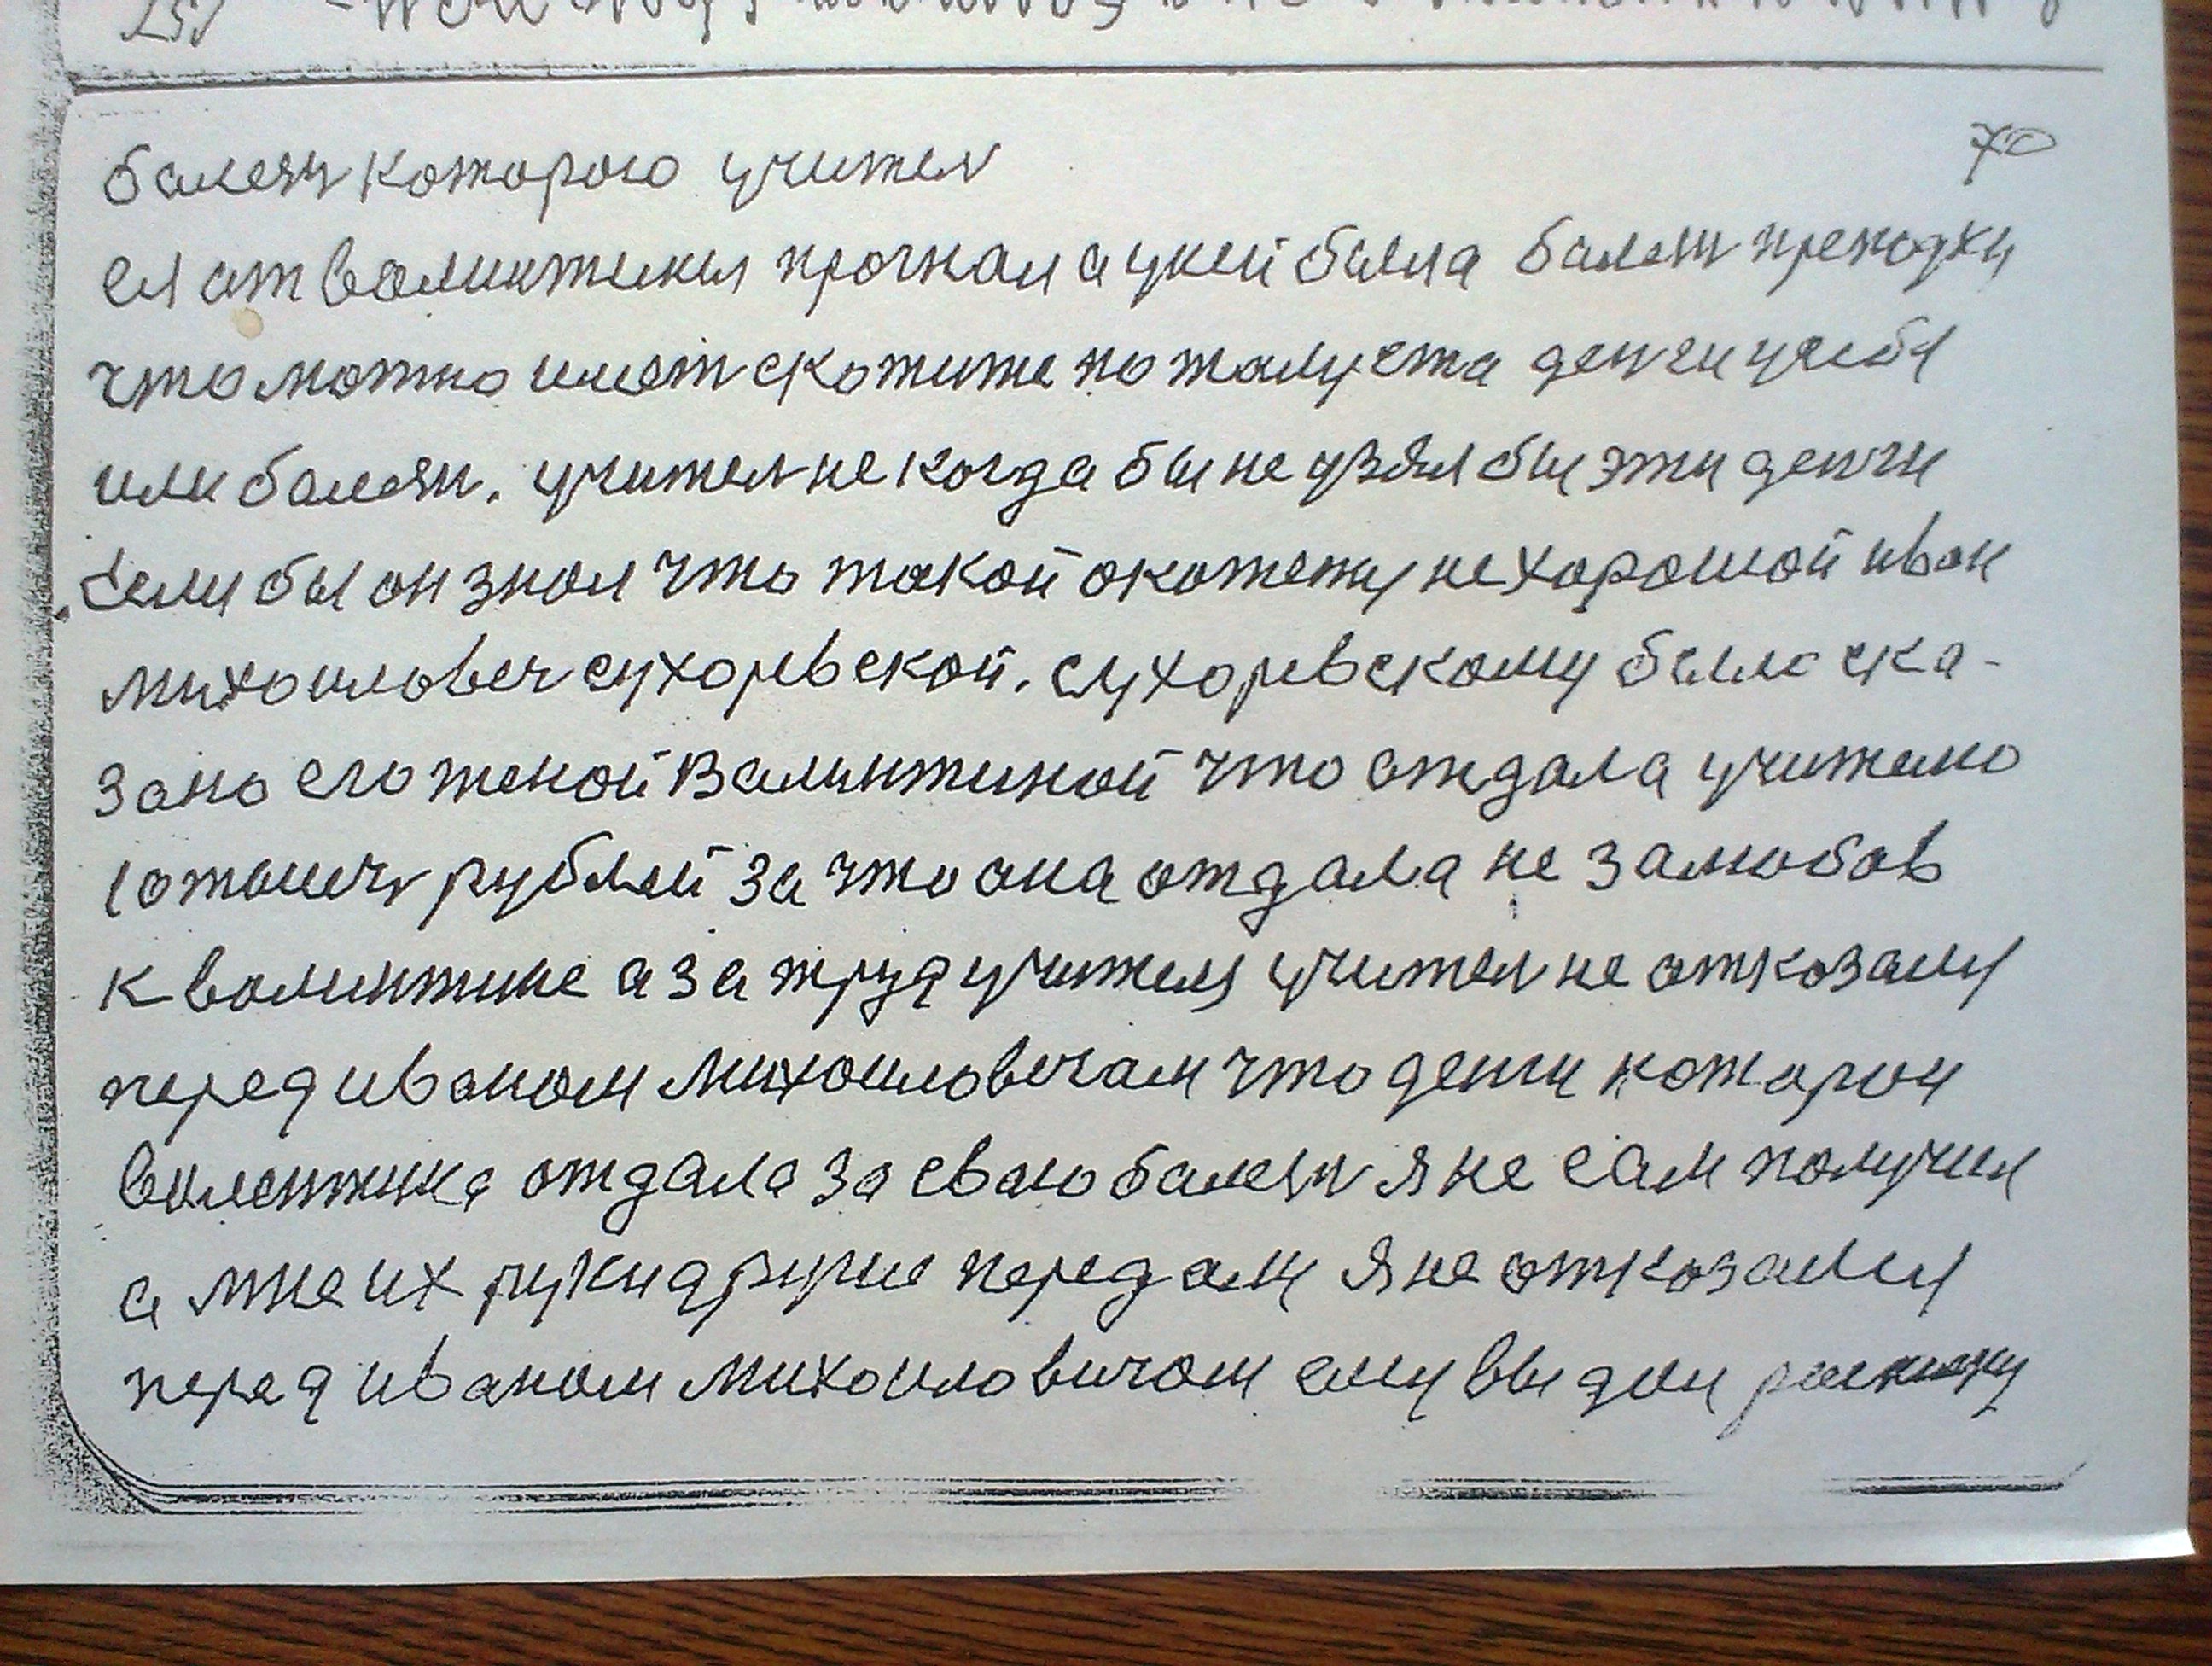 70
балезн которого учител
ея от валинтины прогнал а у ней была балезн препадки
что можно имет скожите пожалуста денги улебя
или балезн. учител некогда бы не узял бы эти денги
если бы он знал что такой окожецы нехорошой иван
михоиловеч сухоревской. сухоревскому было ска-
зано его женой Валинтиной что отдала учителю
10 тысеч рублей за что она отдала не залюбов
к волинтине а за труд учителя учител не отказалц
перед иваном михоиловечам что денги которои
валентина отдала за свою балезн я не сам получил
а мне их руки другие передалы я не отказался
перед иваном михоиловичом ему выдал